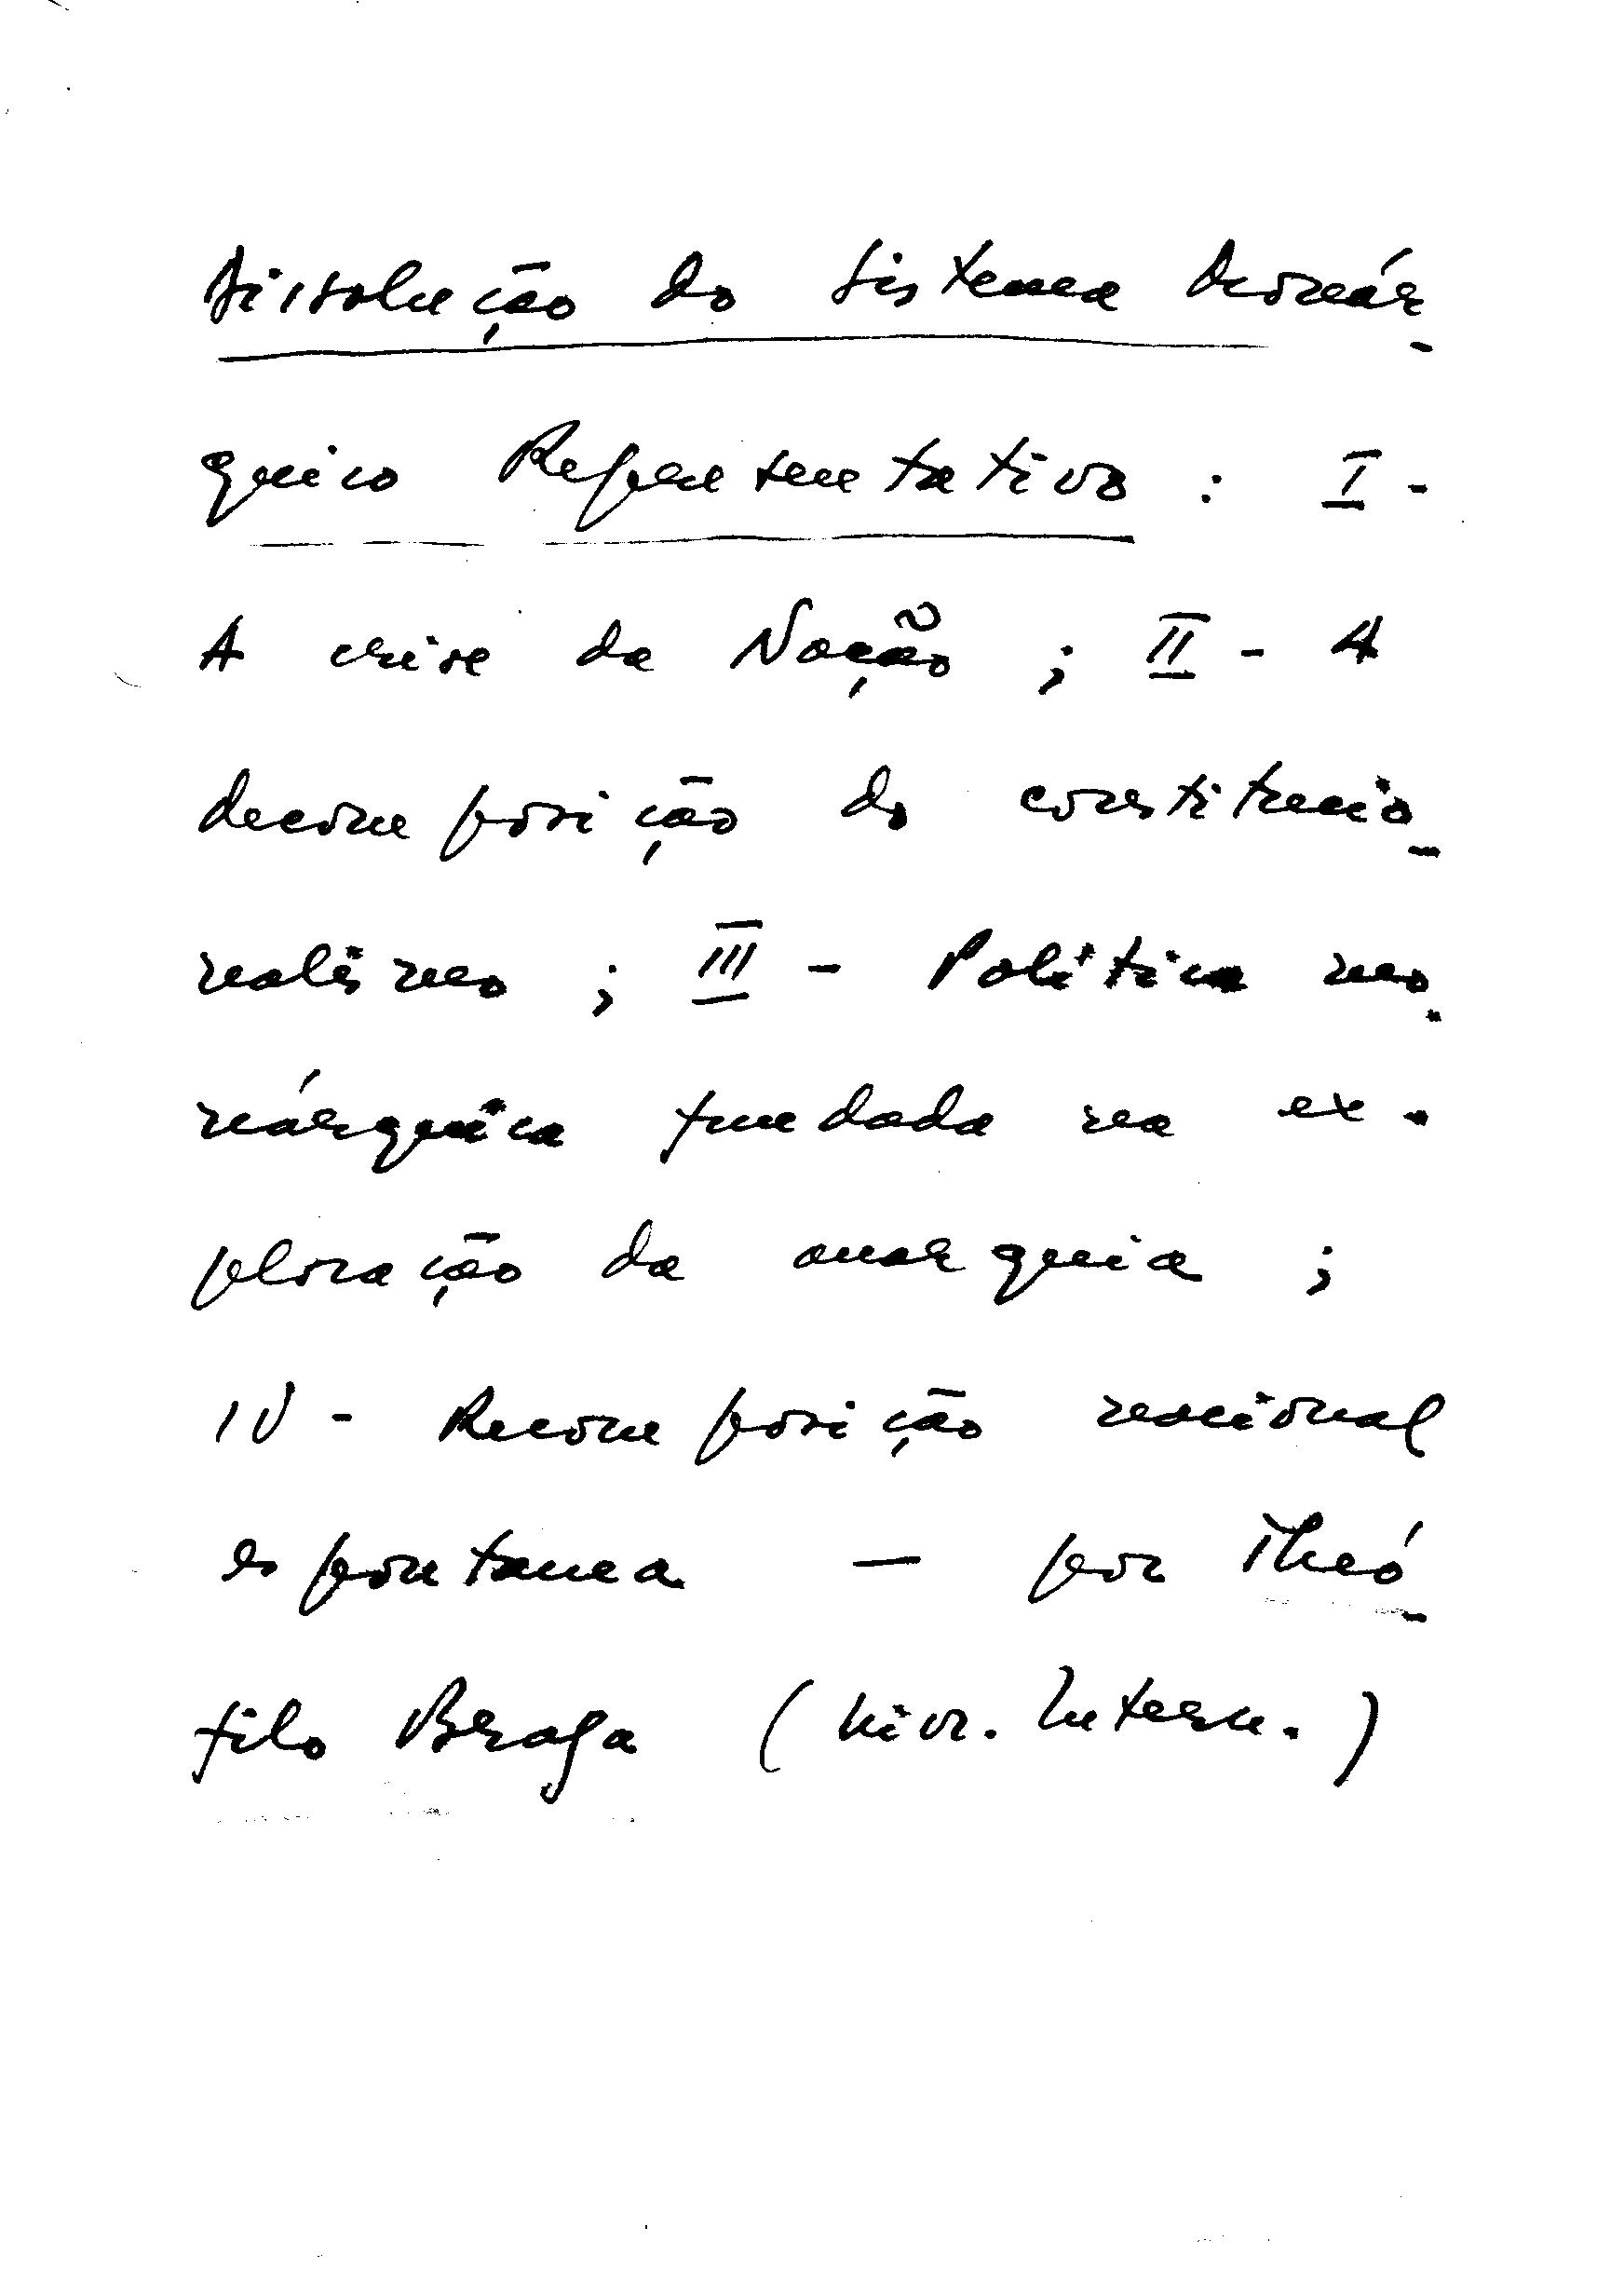 Dissolução do Sistema Monár-
quico Representativo : I -
A crise da Nação ; II - A
decomposição do constitucio-
nalismo ; III - Política mo-
nárquica fundada na ex-
ploração da anarquia ;
IV - Recomposição nacional
espontanea — por Theó-
filo Braga (Livr. Intern.)